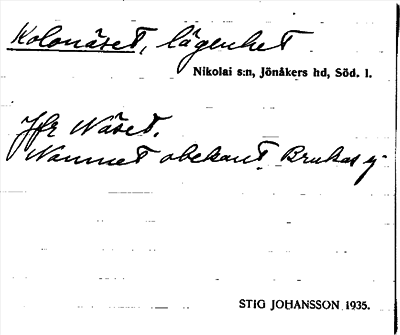 Kolonäset, lägenhet
Nikolai s:n, Jönåkers hd, Söd. l.
Jfr Näset.
Namnet obekant. Brukas ej.
STIG JOHANSSON 1935.